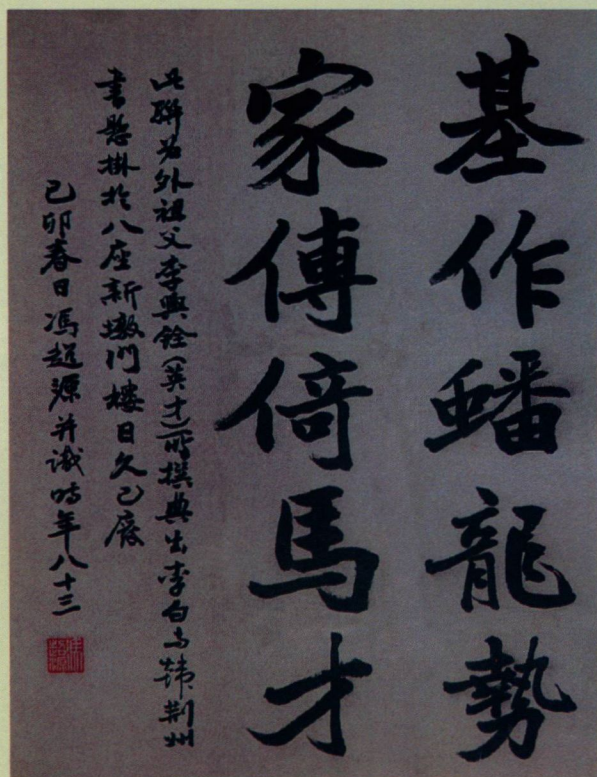 基作蟠龍勢
家傳倚馬才
此聯为外祖父李興銓(英才)所撰典出李白与韩荆州
書懸掛於八座新墩门樓日久已廢
己卯春日馮超源并識时年八十三